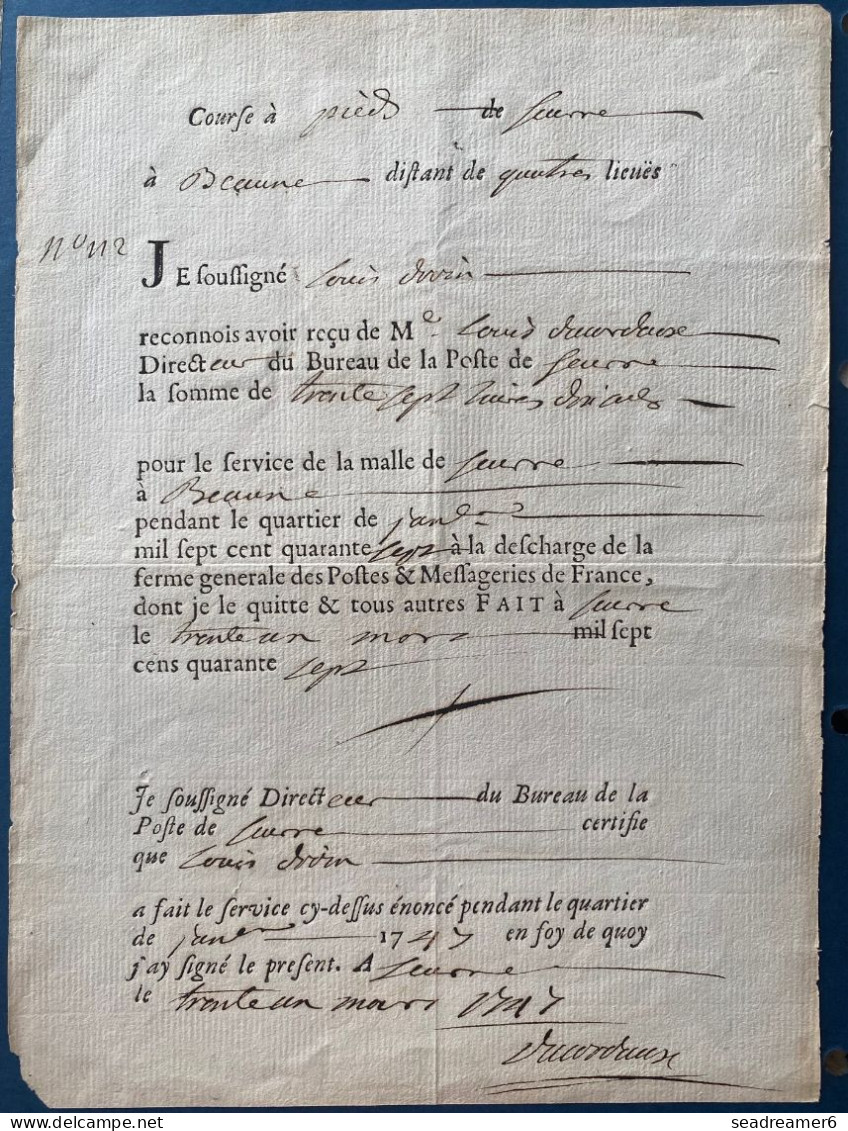 Courſe à pieds de Seurre
à Beaune diſtant de quatres lieuës
N° 112
JE ſouſſigné Louis Droin
reconnois avoir reçu de Me. Louis Ducordeaux
Directeur du Bureau de la Poſte de Seurre
la ſomme de trente ſept livres dix ſols
pour le ſervice de la malle de Seurre
à Beaune
pendant le quartier de janer
mil ſept cent quarante ſept à la deſcharge de la
ferme generale des Poſtes & Meſſageries de France,
dont je le quitte & tous autres FAIT à Seurre
le trente un mars mil ſept
cens quarante ſept
Je ſouſſigné Directeur du Bureau de la
Poſte de Seurre certifie
que Louis Droin
a fait le ſervice cy-deſſus énoncé pendant le quartier
de janer 1747 en foy de quoy
j'ay ſigné le preſent. A Seurre
le trente un mars 1747
seadreamer6